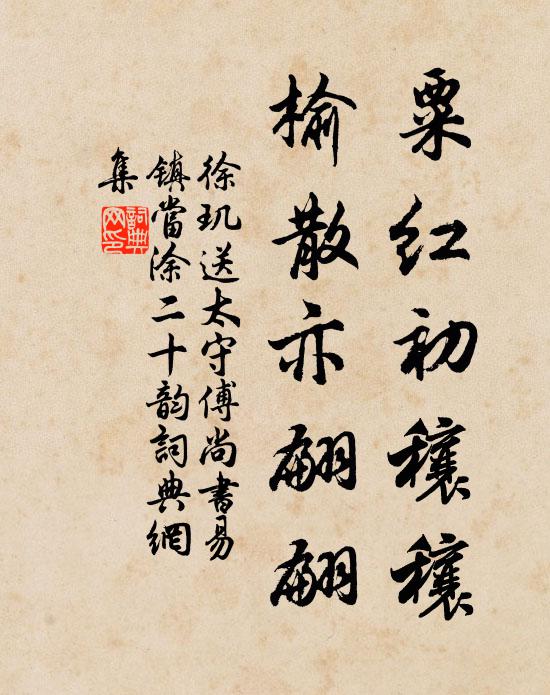 粟紅初穰穰
榆散亦翩翩
徐玑送太守傅尚書易
镇當涂二十韵詞典網
集
詞典
网印